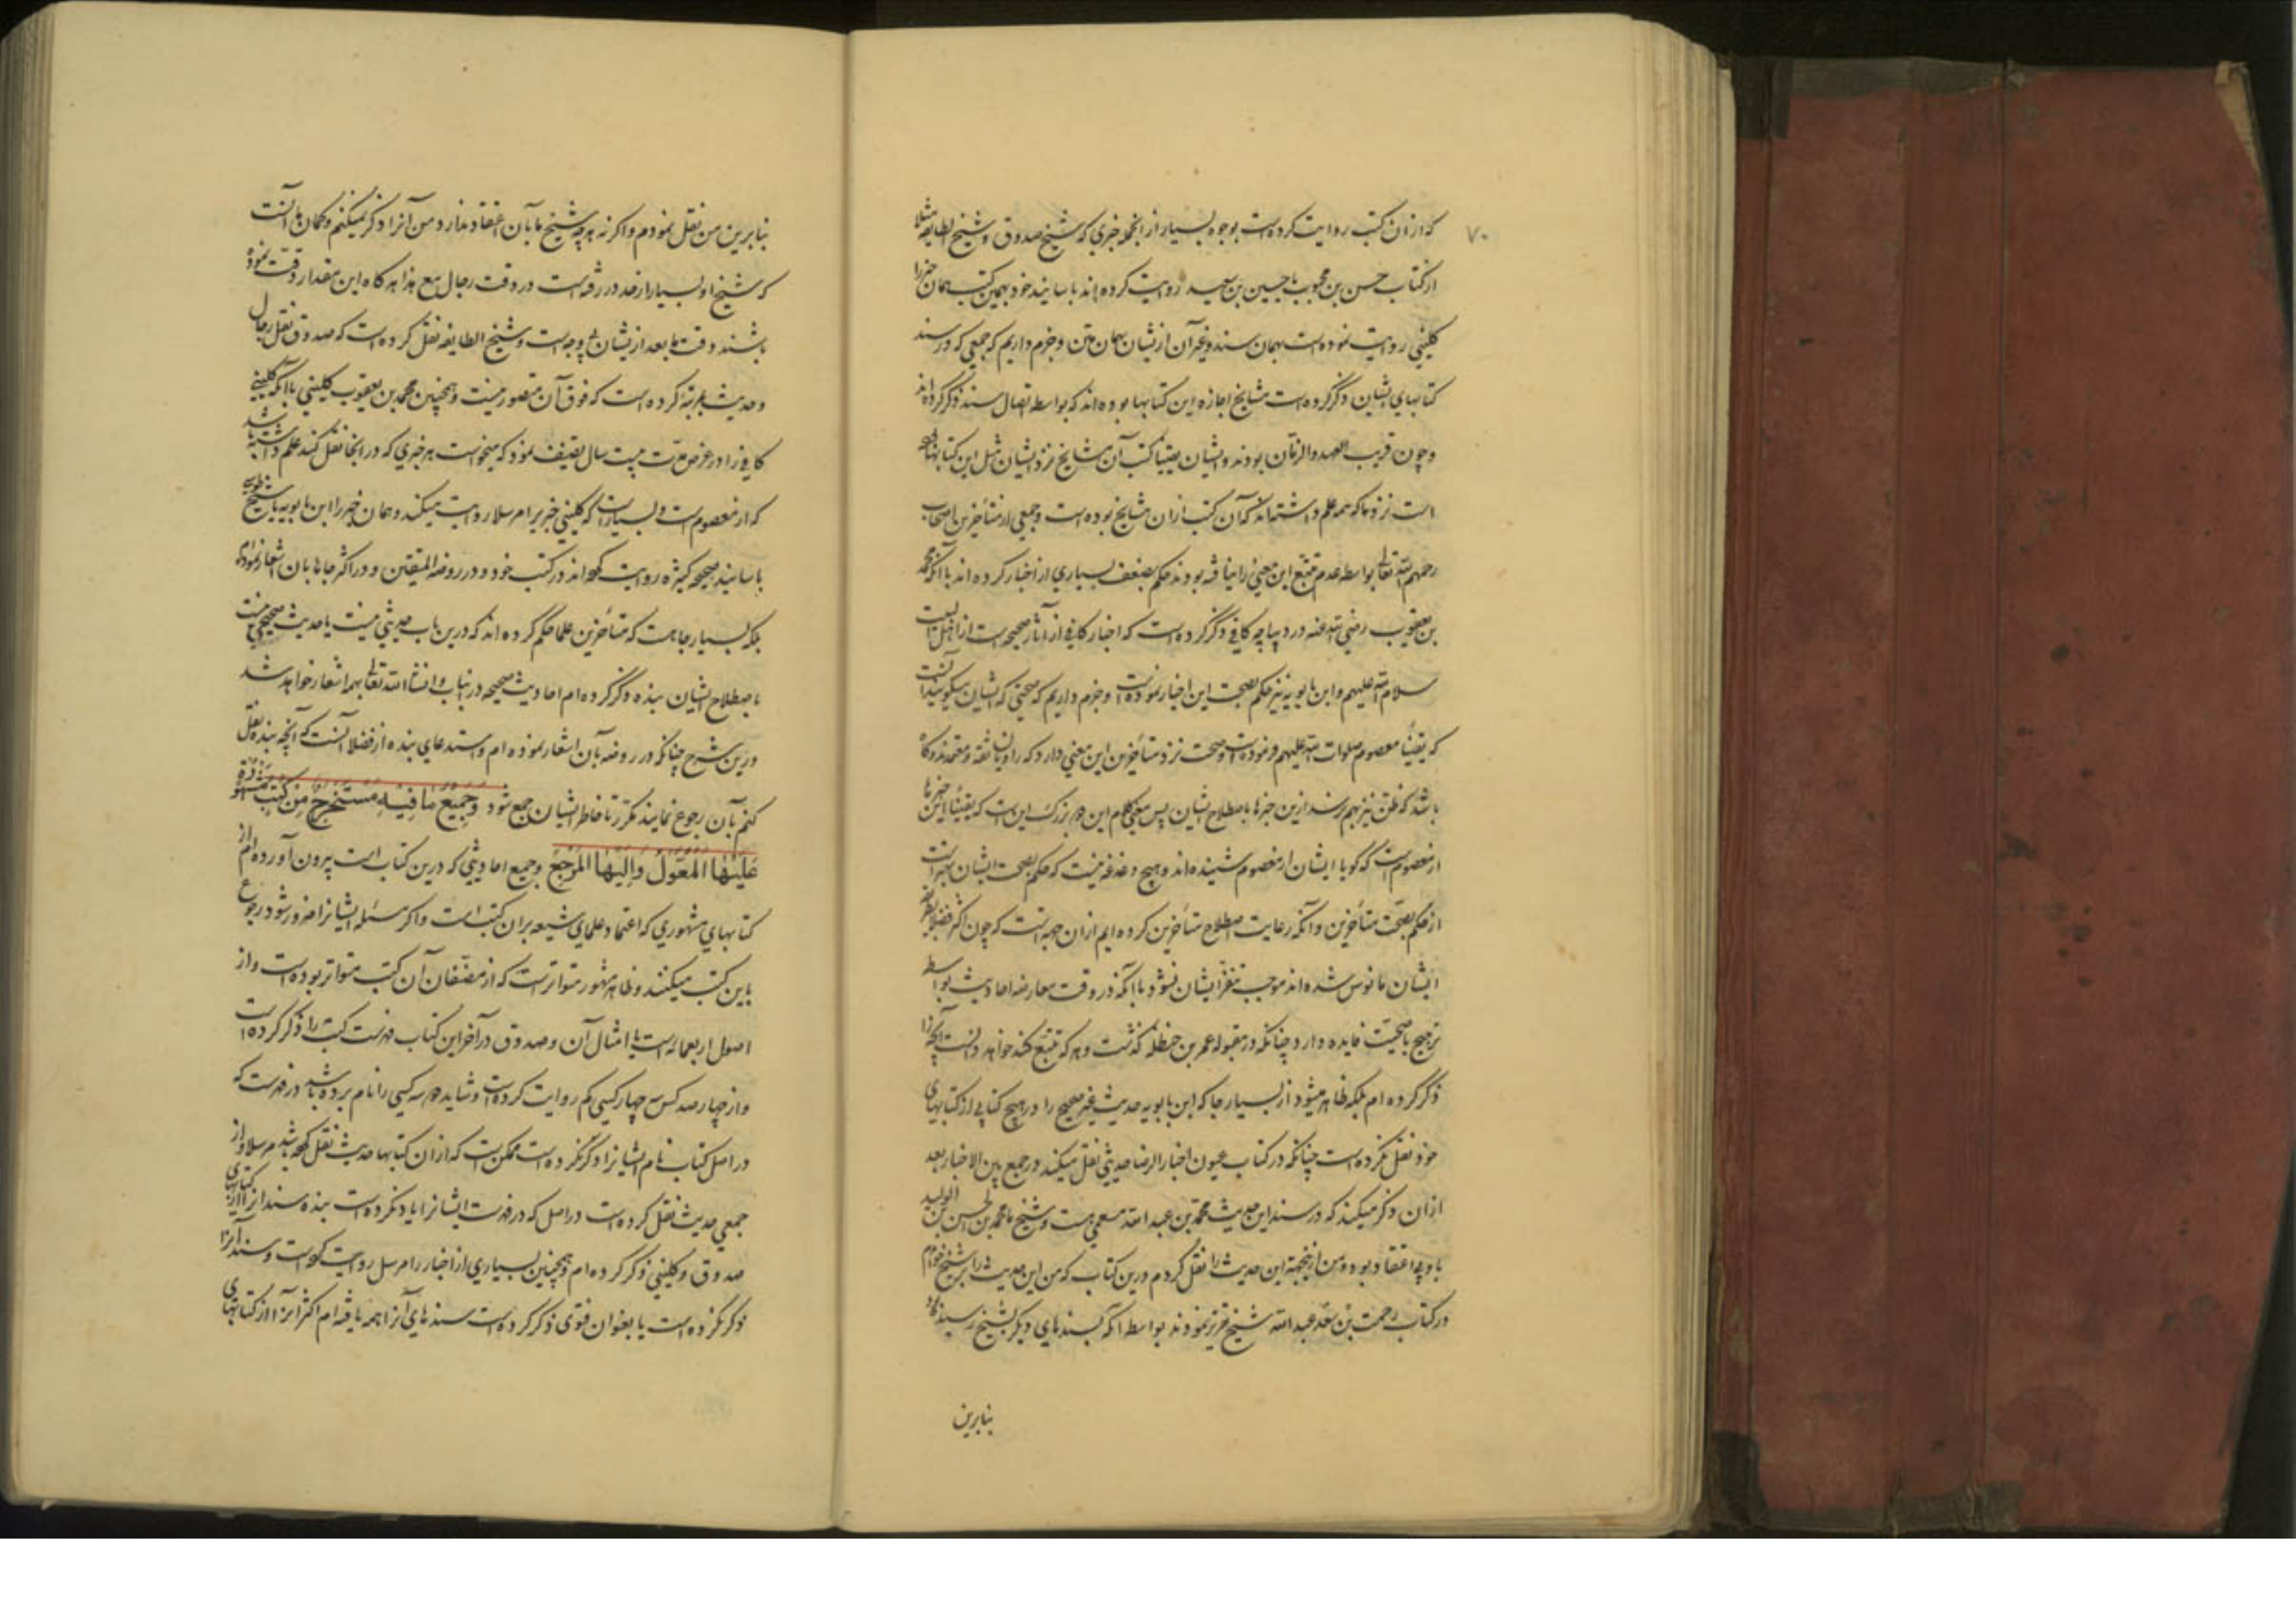 ۷۰
که ازان کتب روایت کرده است بوجوه بسیار از انجمله خبری که شیخ صدوق و شیخ الطایفه مثلا
از کتاب حسن بن محبوب یا حسین بن سعید روایت کرده اند باسانید خود بهمین کتب همان خبر را
کلینی روایت نموده است بهمان سند و غیر آن ازیشان بهمان متن و جزم داریم که جمعی که در سند
کتابهای ایشان ذکر کرده است مشایخ اجازه این کتابها بوده اند که بواسطه اتصال سند ذکر کرده اند
و چون قریب العهد و الزمان بودند و ایشان یقینا کتب آن مشایخ نزد ایشان مثل این کتابهای
است نزد ما که همه علم داشته اند که آن کتب ازان مشایخ بوده است و جمعی از متأخرین اصحاب
رحمهم الله تعالی بواسطه عدم تتبع این معنی را نیافته بودند حکم بضعف بسیاری از اخبار کرده اند با آنکه محمد
بن یعقوب رضی الله عنه در دیباچه کافی ذکر کرده است که اخبار کافی از آثار صحیحه است از اهل بیت
سلام الله علیهم و ابن بابویه نیز حکم بصحت این اخبار نموده است و جزم داریم که صحتی که ایشان میگویند آنست
که یقیناً معصوم صلوات الله علیهم فرموده است و صحت نزد متأخرین این معنی دارد که راویان ثقه و معتمدند و گاه
باشد که ظن نیز بهم نرسد ازین خبرها باصطلاح ایشان پس معنی کلام این دو بزرگ این است که یقیناً این خبرها
از معصومست که گویا ایشان از معصوم شنیده اند و هیچ دغدغه نیست که حکم بصحت ایشان بهتر است
از حکم بصحّت متأخرین و آنکه رعایت اصطلاح متأخرین کرده ایم ازان جهة است که چون اکثر فضلا بطرز
ایشان مانوس شده اند موجب تنفّر ایشان نشود با آنکه در وقت معارضه احادیث بواسطه
ترجیح باصحیّت فایده دارد چنانکه در مقبوله عمر بن حنظله گذشت و هر که تتبع کند خواهد دانست آنچه را
ذکر کرده ام بلکه ظاهر میشود از بسیار جا که ابن بابویه حدیث غیر صحیح را در هیچ کتابی از کتابهای
خود نقل نکرده است چنانکه در کتاب عیون اخبار الرضا حدیثی نقل میکند در جمع بین الاخبار بعد
ازان ذکر میکند که در سند این حدیث محمّد بن عبد الله مسمعی هست و شیخ ما محمد بن الحسن بن الولید
باو بد اعتقاد بود و من ازینجهة این حدیث را نقل کردم درین کتاب که من این حدیث را بر شیخ خواندم
در کتاب رحمت بن سعد عبد الله شیخ قرزنمودند بواسطه آنکه بسندهای دیگر بشیخ رسیده بود
بنابرین
بنابرین من نقل نمودم و اگر نه هر چه شیخ ما بآن اعتقاد ندارد من آنرا ذکر نمیکنم و گمان ما آنست
که شیخ او بسیار از حد در رفته است در دقت رجال مع هذا هر گاه این مقدار دقت نموده
باشند دقت ما بعد ازیشان بی وجه است و شیخ الطایفه نقل کرده است که صدوق نقل رجال
و حدیث بمرتبۀ کرده است که فوق آن متصور نیست و همچنین محمد بن یعقوب کلینی با آنکه کلینی
کافی را در عرض مدّت بیست سال تصنیف نمود که میخواست هر خبری که در انجا نقل کند علم داشته باشد
که از معصوم است و بسیار است که کلینی خبر را مرسلا روایت میکند و همان خبر را ابن بابویه یا شیخ طوسی
باسانید صحیحه کثیره روایت کرده اند در کتب خود و در روضة المتقین و در اکثر جاها بان اشعار نموده ام
بلکه بسیار جا هست که متأخرین علما حکم کرده اند که درین باب حدیثی نیست یا حدیث صحیحی نیست
باصطلاح ایشان بنده ذکر کرده ام احادیث صحیحه در انباب و انشاء الله تعالی بهمه اشعار خواهد شد
درین شرح چنانکه در روضه بآن اشعار نموده ام و استدعای بنده از فضلا آنست که آنچه بنده نقل
کنم بآن رجوع نمایند مکرّر تا خاطر ایشان جمع شود وَجَمِیْعُ ما فِیْهِ مُسْتَخْرَجٌ مِن کُتُبٍ مَشْهُوْرَةٍ
عَلَیْهَا المُعَوَّلُ وَاِلَیْهَا المَرْجِعُ و جمیع احادیثی که درین کتاب است بیرون آورده ام از
کتابهای مشهوری که اعتماد علمای شیعه بران کتب است و اگر مسئله ایشانرا ضرور شود رجوع
باین کتب میکنند و ظاهر مشهور متواتر است که از مصنّفان آن کتب متواتر بوده است و از
اصول اربعمائه است یا امثال آن و صدوق در آخر این کتاب فهرست کتب را ذکر کرده است
و از چهار صد کس چهار کسی کم روایت کرده است و شاید دو سه کسی را نام برده باشد در فهرست که
در اصل کتاب نام ایشانرا ذکر نکرده است ممکن است که ازان کتابها حدیث نقل کرده باشد مرسلا و از
جمعی حدیث نقل کرده است در اصل که در فهرست ایشانرا یاد نکرده است بنده سند آنرا از کتابهای
صدوق و کلینی ذکر کرده ام و همچنین بسیاری از اخبار را مرسل روایت کرده است و سند آنرا
ذکر نکرده است یا بعنوان فتوی ذکر کرده است سندهای آنرا همه یافته ام اکثر آنرا از کتابهای